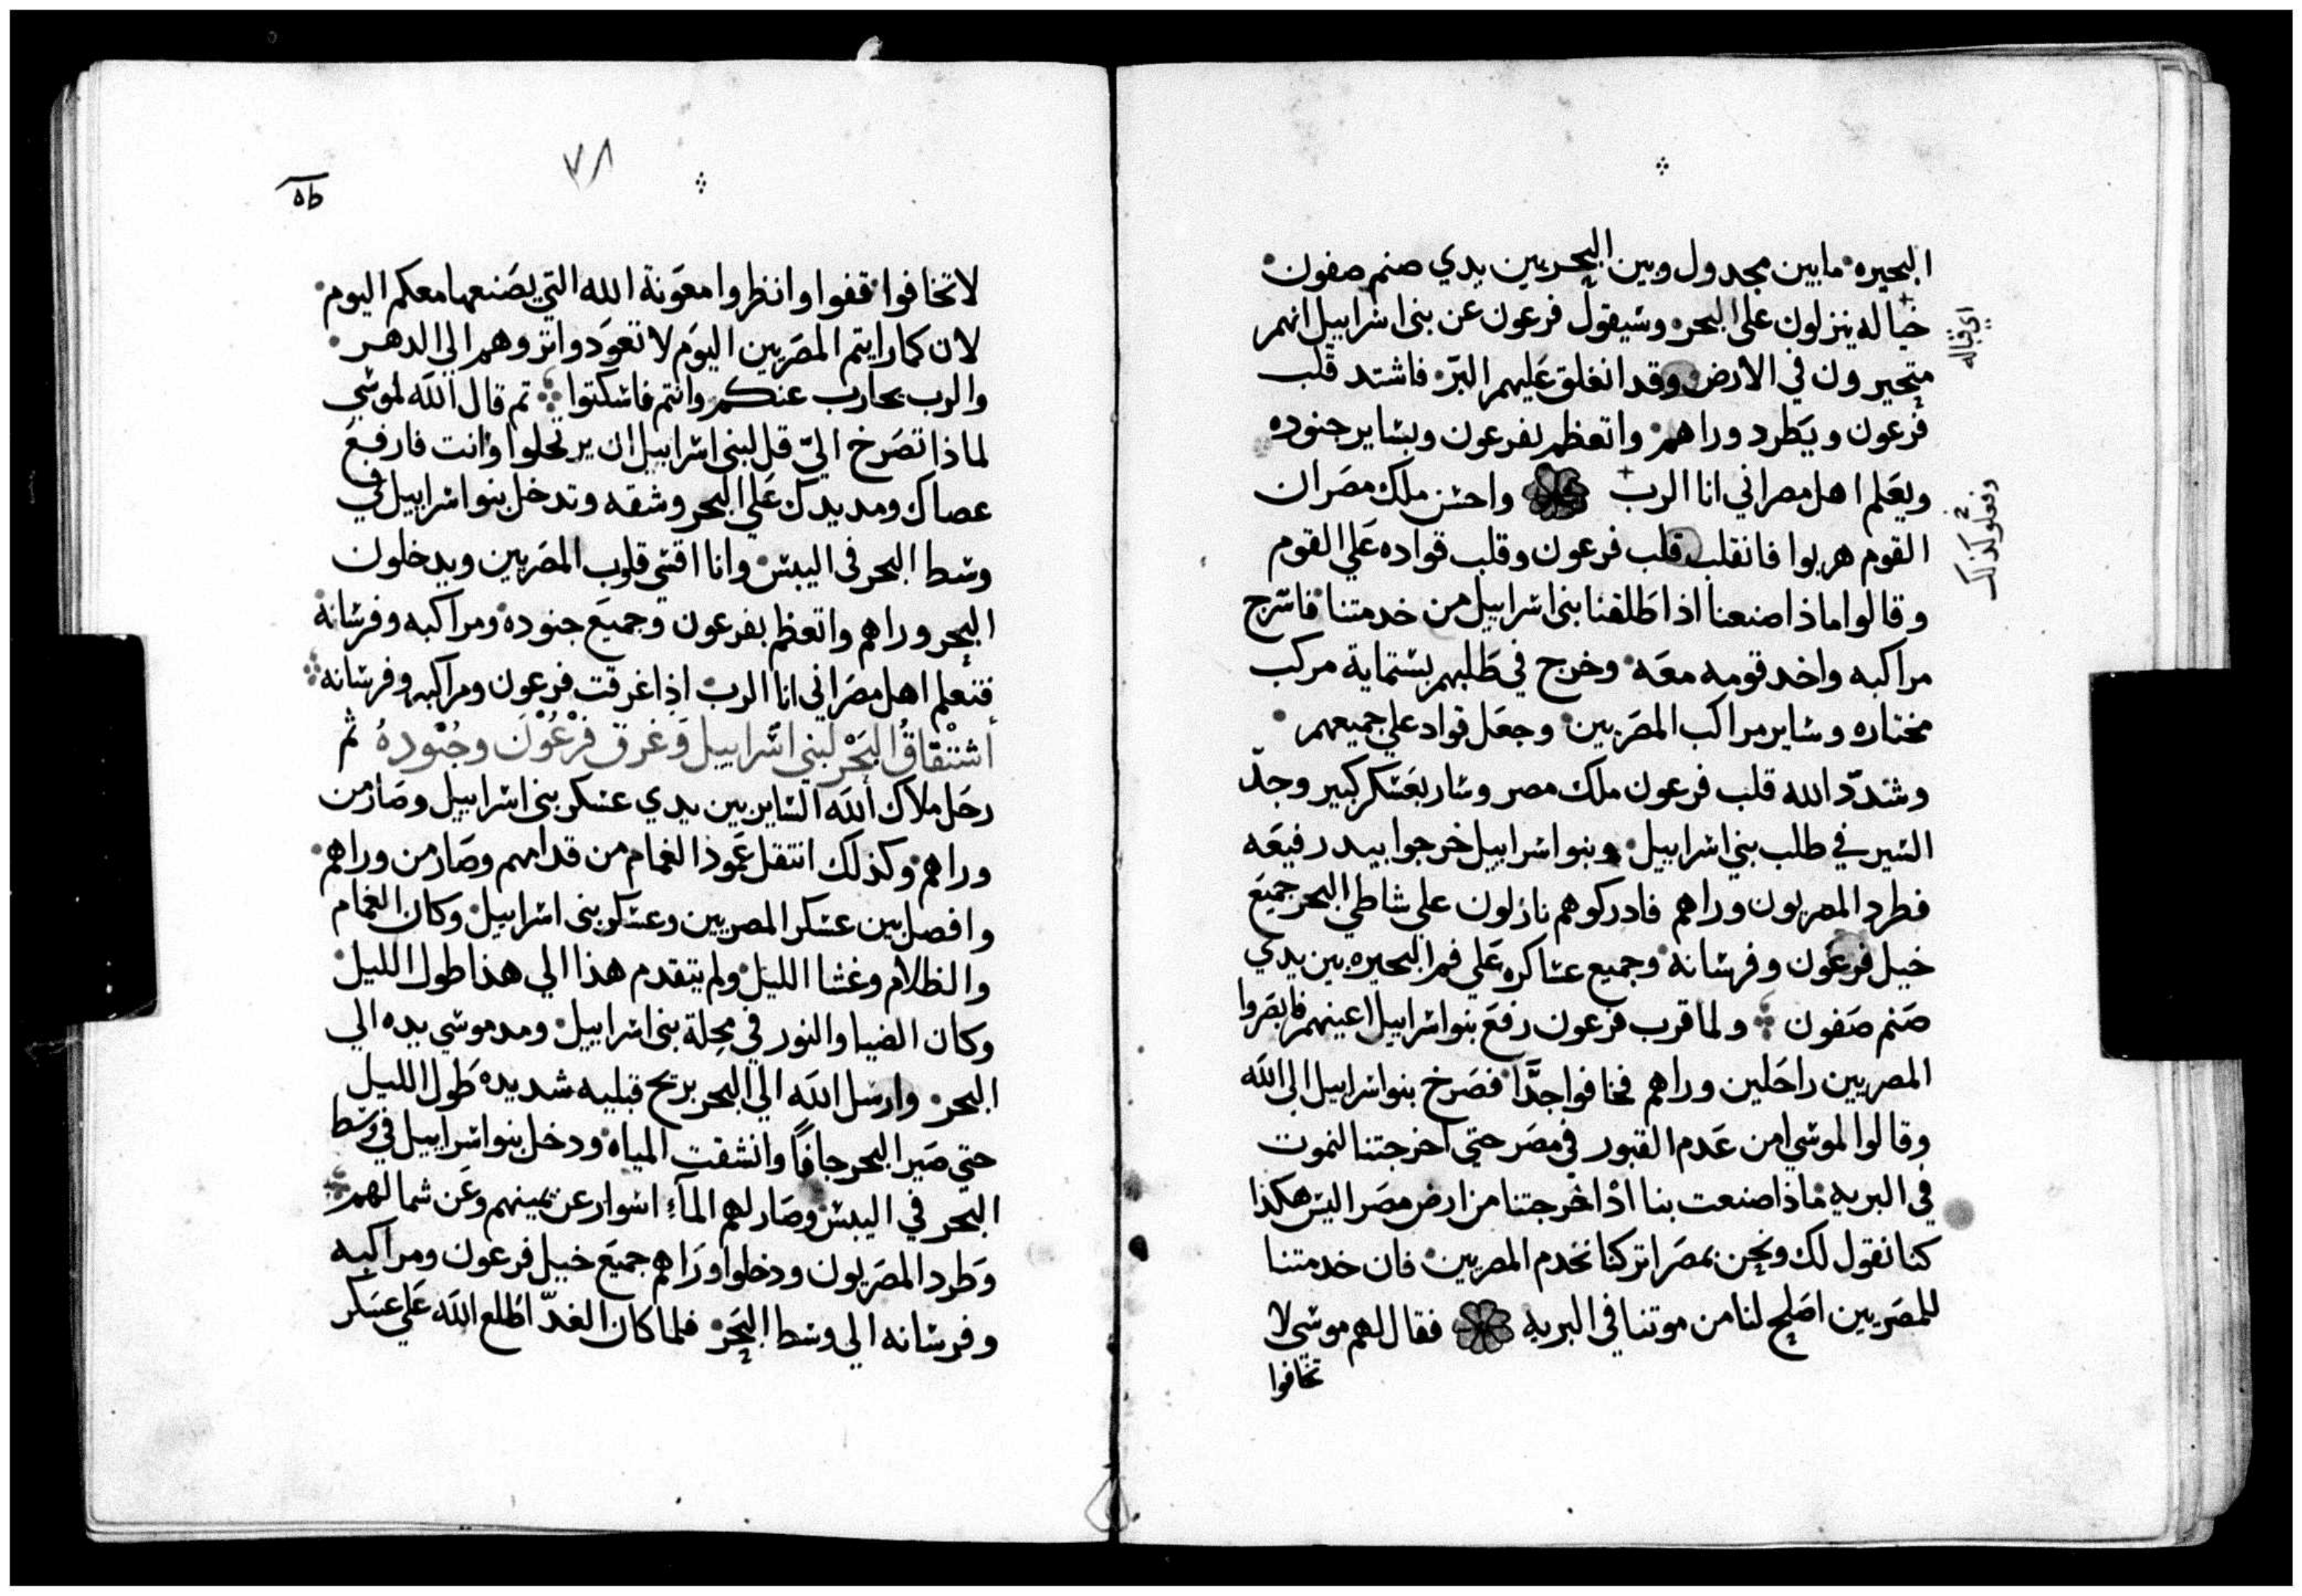 البحيره ما بين مجدول وبين البحر بين يدي صنم صفون
خياله ينزلون على البحر وسيقول فرعون عن بنى اسراييل انهم
اي قباله
متحيرون في الارض وقد انغلق عليهم البرّ فاشتد قلب
فرعون ويطرد وراهم واتعظم بفرعون وبساير جنوده
ويعلم اهل مصر اني انا الرب واحسن ملك مصر ان
وفعلو كذلك
القوم هربوا فانقلب قلب فرعون وقلب قواده علي القوم
وقالوا ماذا صنعنا اذا طلقنا بنى اسراييل من خدمتنا فاسرج
مراكبه واخد قومه معه وخرج في طلبهم بستماية مركب
مختاره وساير مراكب المصريين وجعل قواد علي جميعهم
وشدّد الله قلب فرعون ملك مصر وسار بعسكر كبير وجدّ
السير في طلب بني اسراييل وبنو اسراييل خرجوا بيد رفيعه
فطرد المصريون وراهم فادركوهم نازلون على شاطي البحر جميع
خيل فرعون وفرسانه وجميع عساكره على فم البحيره بين يدي
صنم صفون ولما قرب فرعون رفع بنو اسراييل اعينهم فابصروا
المصريين راحلين وراهم فخافوا جدًّا فصرخ بنو اسراييل الى الله
وقالوا لموسي امن عدم القبور في مصر حتي اخرجتنا لنموت
في البريه ماذا صنعت بنا اذ اخرجتنا من ارض مصر اليس هكذا
كنا نقول لك ونحن بمصر اتركنا نخدم المصريين فان خدمتنا
للمصريين اصلح لنا من موتنا في البريه فقال لهم موسي لا
تخافوا
٧٨
لا تخافوا قفوا وانظروا معونة الله التي يصنعها معكم اليوم
لان كما رايتم المصريين اليوم لا تعودوا تروهم الي الدهر
والرب يحارب عنكم وانتم فاسكتوا تم قال الله لموسي
لماذا تصرخ اليّ قل لبنى اسراييل ان يرتحلوا وانت فارفع
عصاك ومد يدك علي البحر وشقه وتدخل بنو اسراييل في
وسط البحر فى اليبس وانا اقسي قلوب المصريين ويدخلون
البحر وراهم واتعظم بفرعون وجميع جنوده ومراكبه وفرسانه
فتعلم اهل مصر اني انا الرب اذا غرقت فرعون ومراكبه وفرسانه
أشتقاق البحر لبني اسراييل وغرق فرعون وجنوده ثم
رحل ملاك الله الساير بين يدي عسكر بنى اسراييل وصار من
وراهم وكذلك انتقل عمود الغمام من قدامهم وصار من وراهم
وافصل بين عسكر المصريين وعسكر بنى اسراييل وكان الغمام
والظلام وغشا الليل ولم يتقدم هذا الي هذا طول الليل
وكان الضيا والنور في محلة بنى اسراييل ومد موسي يده الي
البحر وارسل الله الي البحر بريح قبليه شديده طول الليل
حتي صير البحر جافاً وانشقت المياه ودخل بنو اسراييل في وسط
البحر في اليبس وصار لهم المآء اسوار عن يمينهم وعن شمالهم
وطرد المصريون ودخلوا وراهم جميع خيل فرعون ومراكبه
وفرسانه الي وسط البحر فلما كان الغدّ اطلع الله علي عسكر